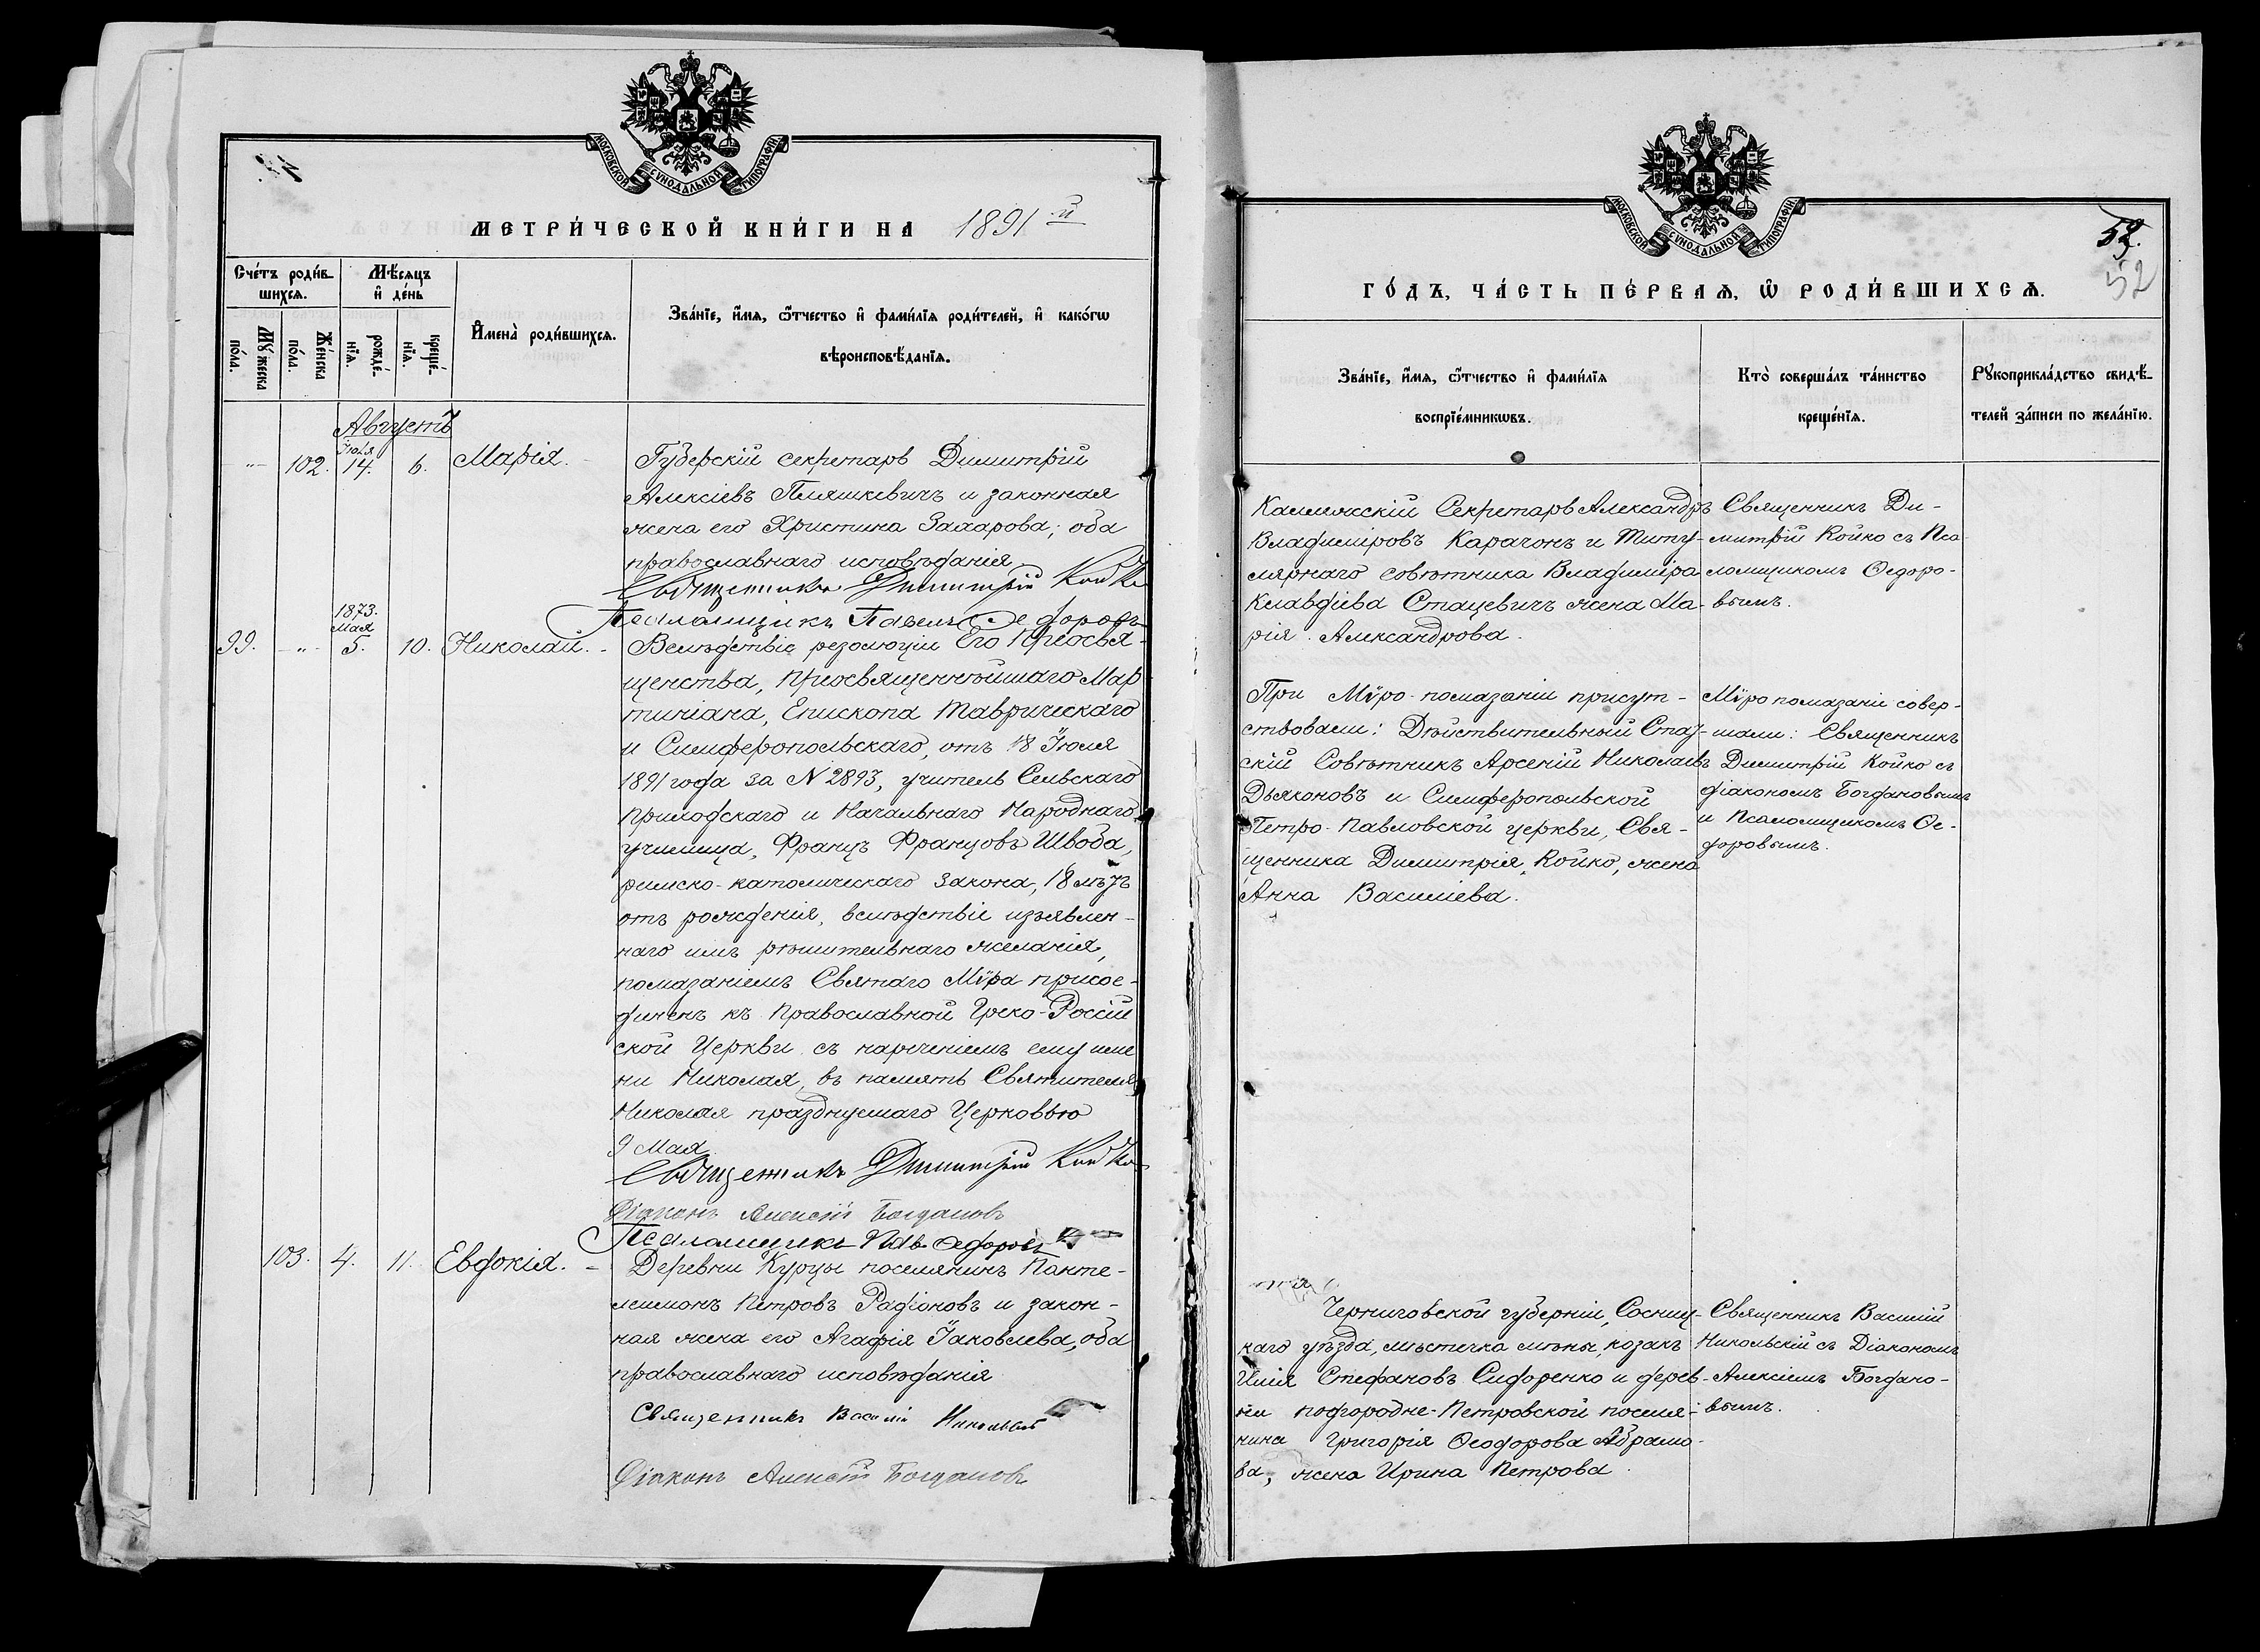 МОСКОВСКОЙ СУНОДАЛЬНОЙ ТИПОГРАФІИ
МЕТРИ́ЧЕСКОЙ КНИ́ГИ НА 1891 й
Сче́тъ роди́в-
шихся.
Мѣ́сяцъ
и҆ де́нь
Му́жеска
по́ла.
Же́нска
по́ла.
рожде́-
нїя.
креще́-
нїя.
И҆мена̀ роди́вшихся.
Зва́нїе, и҆́мя, ѻ҆́тчество и҆ фами́лїя роди́телей, и҆ како́гѡ
вѣроисповѣ́данїя.
Августъ
Іюля
" 102. 14. 6. Марія.
Губерскій секретарь Димитрій
Алексіевъ Пляшкевичъ и законная
жена его Христина Захарова; оба
православнаго исповѣданія
Священникъ Димитрій Койко
Псаломщикъ Павелъ Ѳедоровъ
1873.
Мая
99. " 5. 10. Николай.
Вслѣдствіе резолюціи Его Преосвя-
щенства, Преосвященнѣйшаго Мар
тиніана, Епископа Таврическаго
и Симферопольскаго, отъ 18 Іюля
1891 года за N 2893, учитель Сельскаго
приходскаго и Начальнаго Народнаго
училища, Францъ Францовъ Швода,
римско-католическаго закона, 18 лѣтъ
отъ рожденія, вслѣдствіе изъявлен-
наго имъ рѣшительнаго желанія,
помазаніемъ Святаго Мѵра присое-
диненъ къ Православной Греко-Россій
ской Церкви съ нареченіемъ ему име
ни Николая, въ память Святителя
Николая празднуемаго Церковью
9 Мая.
Священникъ Димитрій Койко
Діаконъ Алексій Богдановъ
Псаломщикъ Пав. Ѳедоровъ
103. 4. 11. Евдокія.
Деревни Курцы поселянинъ Панте-
леимонъ Петровъ Радіоновъ и закон-
ная жена его Агафія Іаковлева, оба
православнаго исповѣданія
Священникъ Василій Никольскій
Діаконъ Алексій Богдановъ
МОСКОВСКОЙ СУНОДАЛЬНОЙ ТИПОГРАФІИ
52.
52
ГО́ДЪ, ЧА́СТЬ ПЕ́РВАЯ, Ѡ҆ РОДИ́ВШИХСЯ.
Зва́нїе, и҆́мя, ѻ҆́тчество и҆ фами́лїя
воспрїе́мникѡвъ.
Кто̀ соверша́лъ та́инство
креще́нїя.
Рꙋкоприкла́дство свидѣ́-
телей за́писи по жела́нїю.
Коллежскій Секретарь Александръ
Владиміровъ Карачонъ и Титу-
лярнаго совѣтника Владиміра
Клавдіева Стацевичъ жена Ма-
рія Александрова.
Священникъ Ди-
митрій Койко съ Пса
ломщикомъ Ѳедоро-
вымъ.
При Мѵро-помазаніи присут-
ствовали: Дѣйствительный Стат-
скій Совѣтникъ Арсеній Николаевъ
Дьяконовъ и Симферопольской
Петро-Павловской церкви, Свя-
щенника Димитрія Койко, жена
Анна Василіева.
Мѵропомазаніе совер-
шали: Священникъ
Димитрій Койко съ
діакономъ Богдановымъ
и Псаломщикомъ Ѳе-
доровымъ.
Черниговской губерніи, Сосниц-
каго уѣзда, мѣстечка мѣны, козакъ
Илія Стефановъ Сидоренко и дерев-
ни подгородне-Петровской поселя-
нина Григорія Ѳеодорова Абрамо-
ва, жена Ирина Петрова.
Священникъ Василій
Никольскій съ Діакономъ
Алексіемъ Богдано-
вымъ.